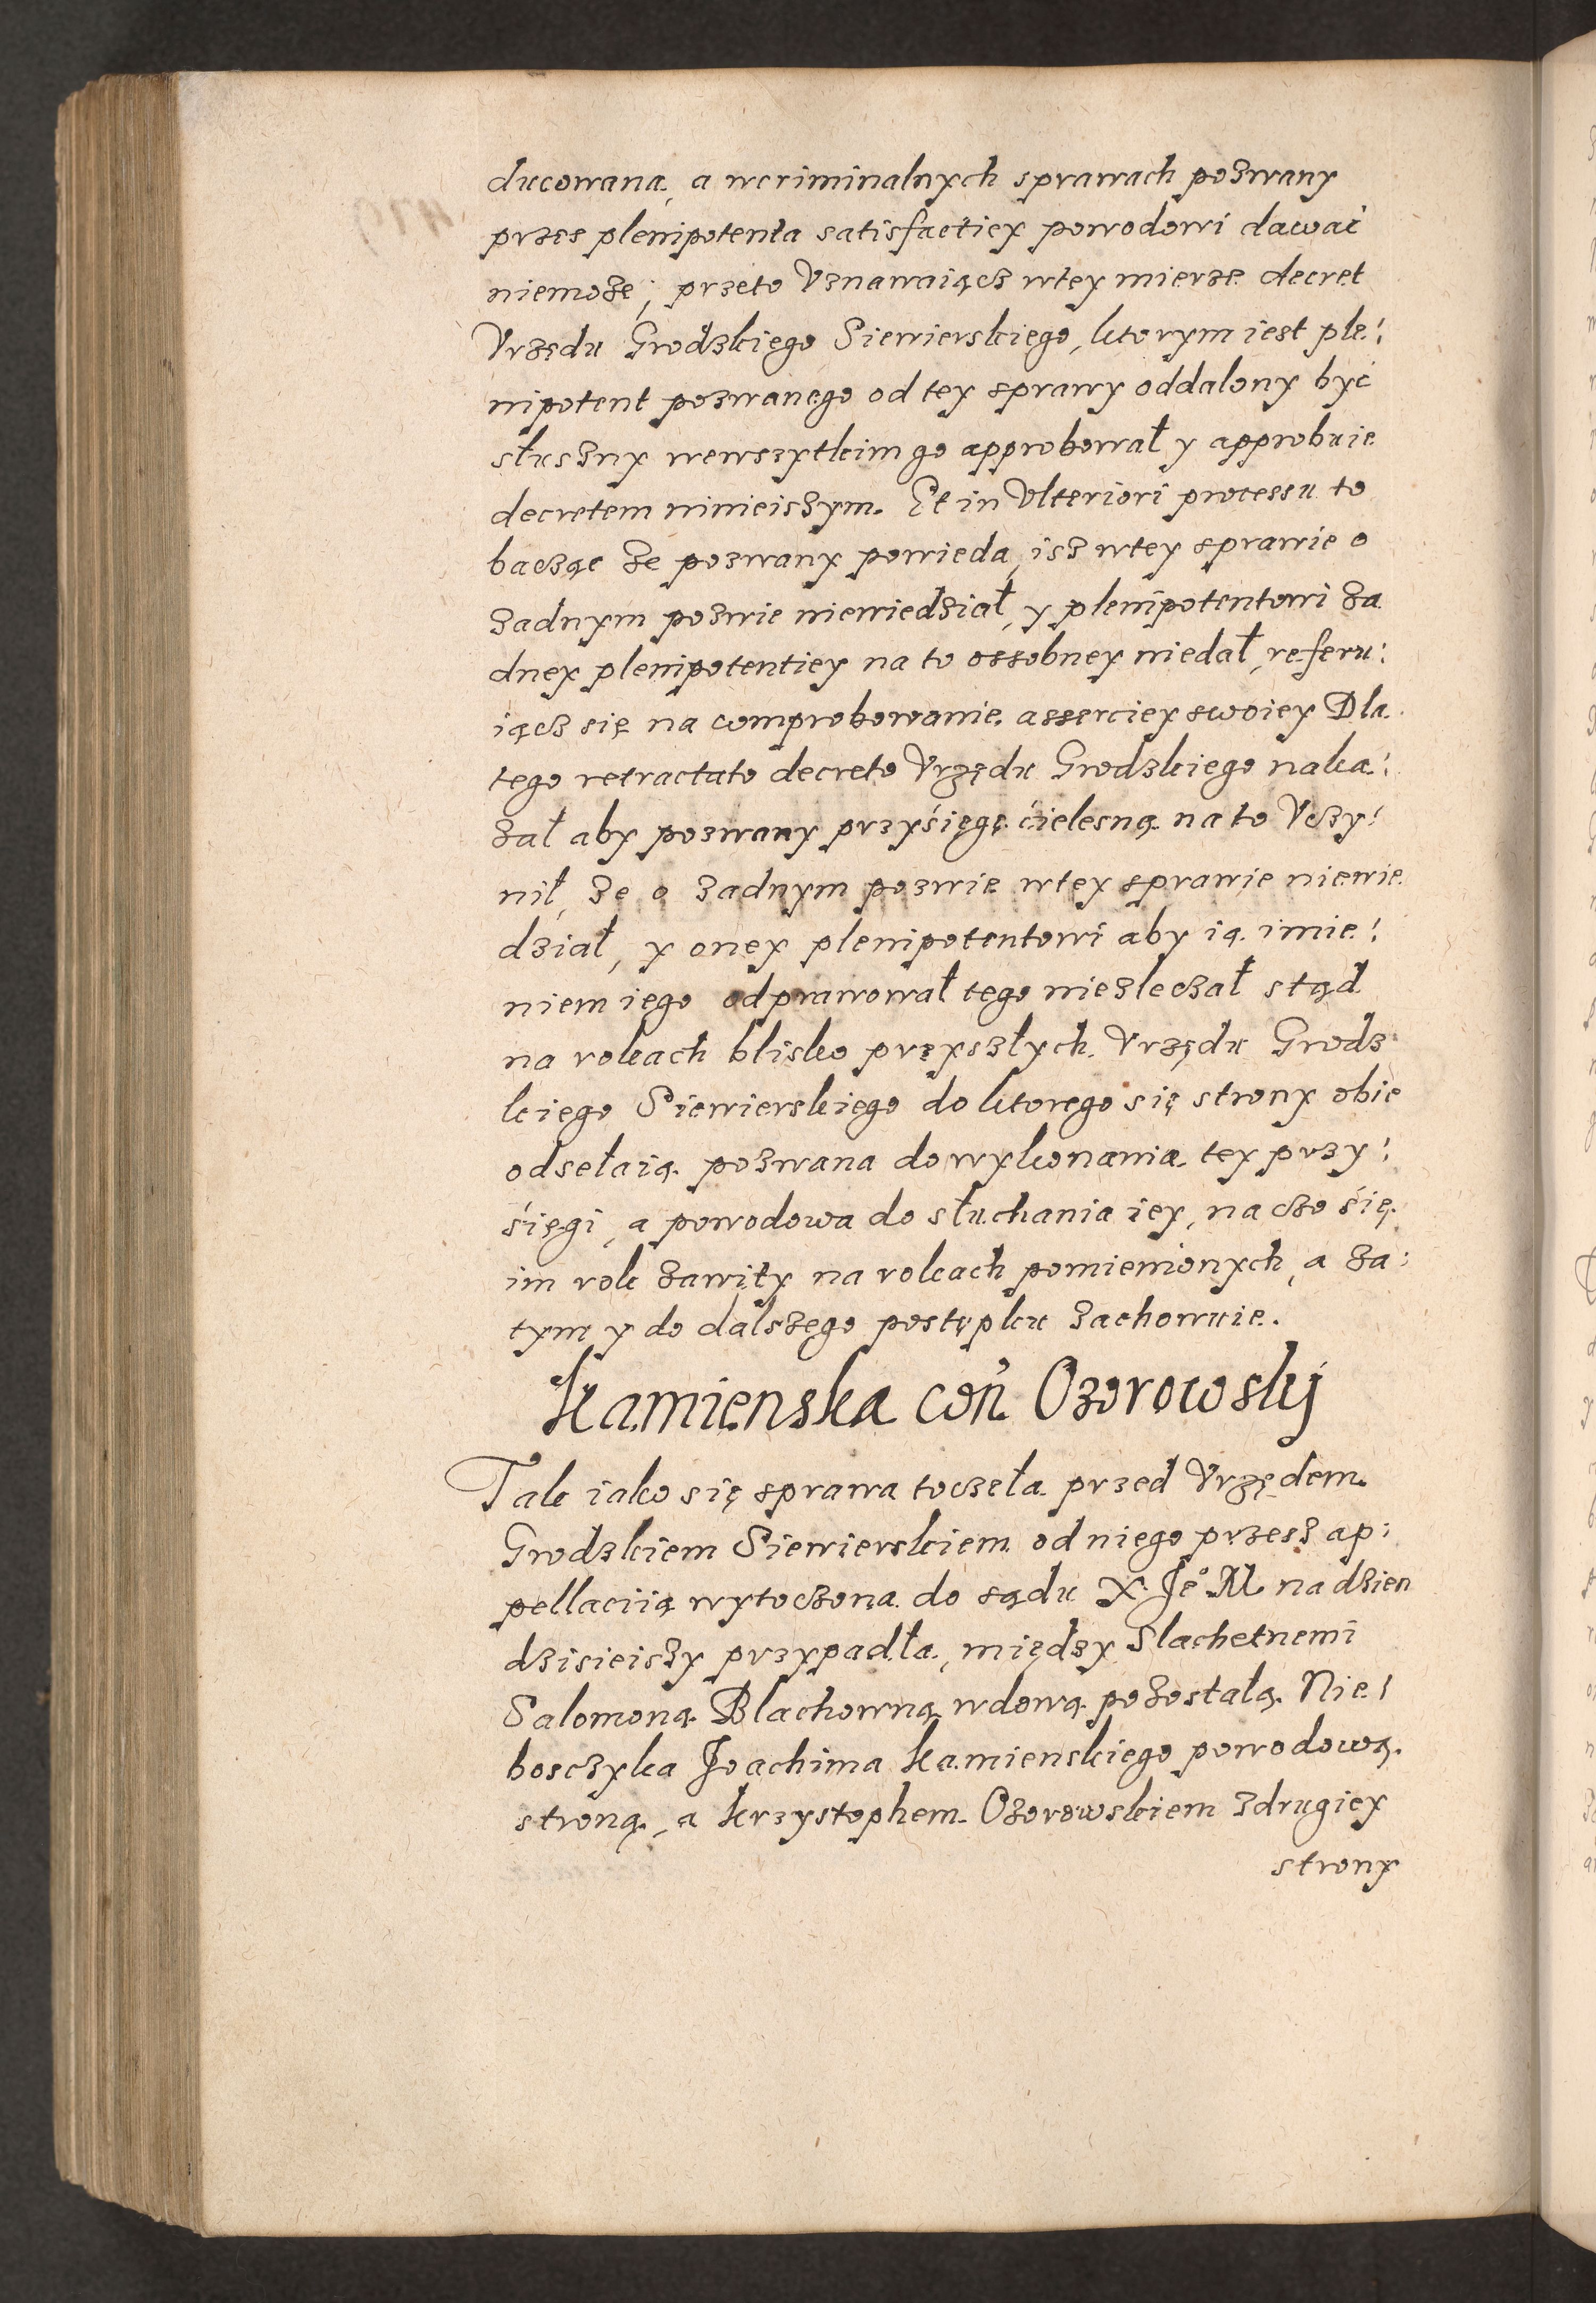 ducowana, a wcriminalnych sprawach pozwany
przes plenipotenta satisfactiey powodowi dawać
niemoze, przeto Vznawaiącz wtey mierze decret
Vrzędu Grodzkiego Siewierskiego, ktorym iest ple:
nipotent pozwanego od tey sprawy oddalony być
słuszny wewszytkim go approbował y approbuie
decretem ninieiszym. Et in Vlteriori processu to
bacząc ze pozwany powieda, isz wtey sprawie o
zadnym pozwie niewiedział, y plenipotentowi za
dney plenipotentiey na to ossobney niedał, referu:
iącz się na comprobowanie asserciey swoiey Dla
tego retractato decreto Vrzędu Grodzkiego naka:
zał aby pozwany przyśięgę ćielesną na to Vczy:
nił, ze o zadnym pozwie wtey sprawie niewie
dział, y oney plenipotentowi aby ią imie:
niem iego odprawował tego niezleczał stąd
na rokach blisko przyszłych Vrzędu Grodz
kiego Siewierskiego do ktorego się strony obie
odsełaią pozwana do wykonania tey przy:
śięgi, a powodowa do słuchania iey, na czo śię
im rok zawity na rokach pomienionych, a za:
tym y do dalszego postępku zachowuie.
Kamienska con Ozorowskj
Tak iako się sprawa toczeła przed Vrzędem
Grodzkiem Siewierskiem od niego przesz ap:
pellaciią wytoczona do sądu X. Je° M na dzien
dzisieiszy przypadła, między Slachetnemi
Salomoną Blachowną wdową pozostałą Nie:
bosczyka Joachima Kamienskiego powodową
stroną, a Krzystophem Ozorowskiem zdrugiey
strony